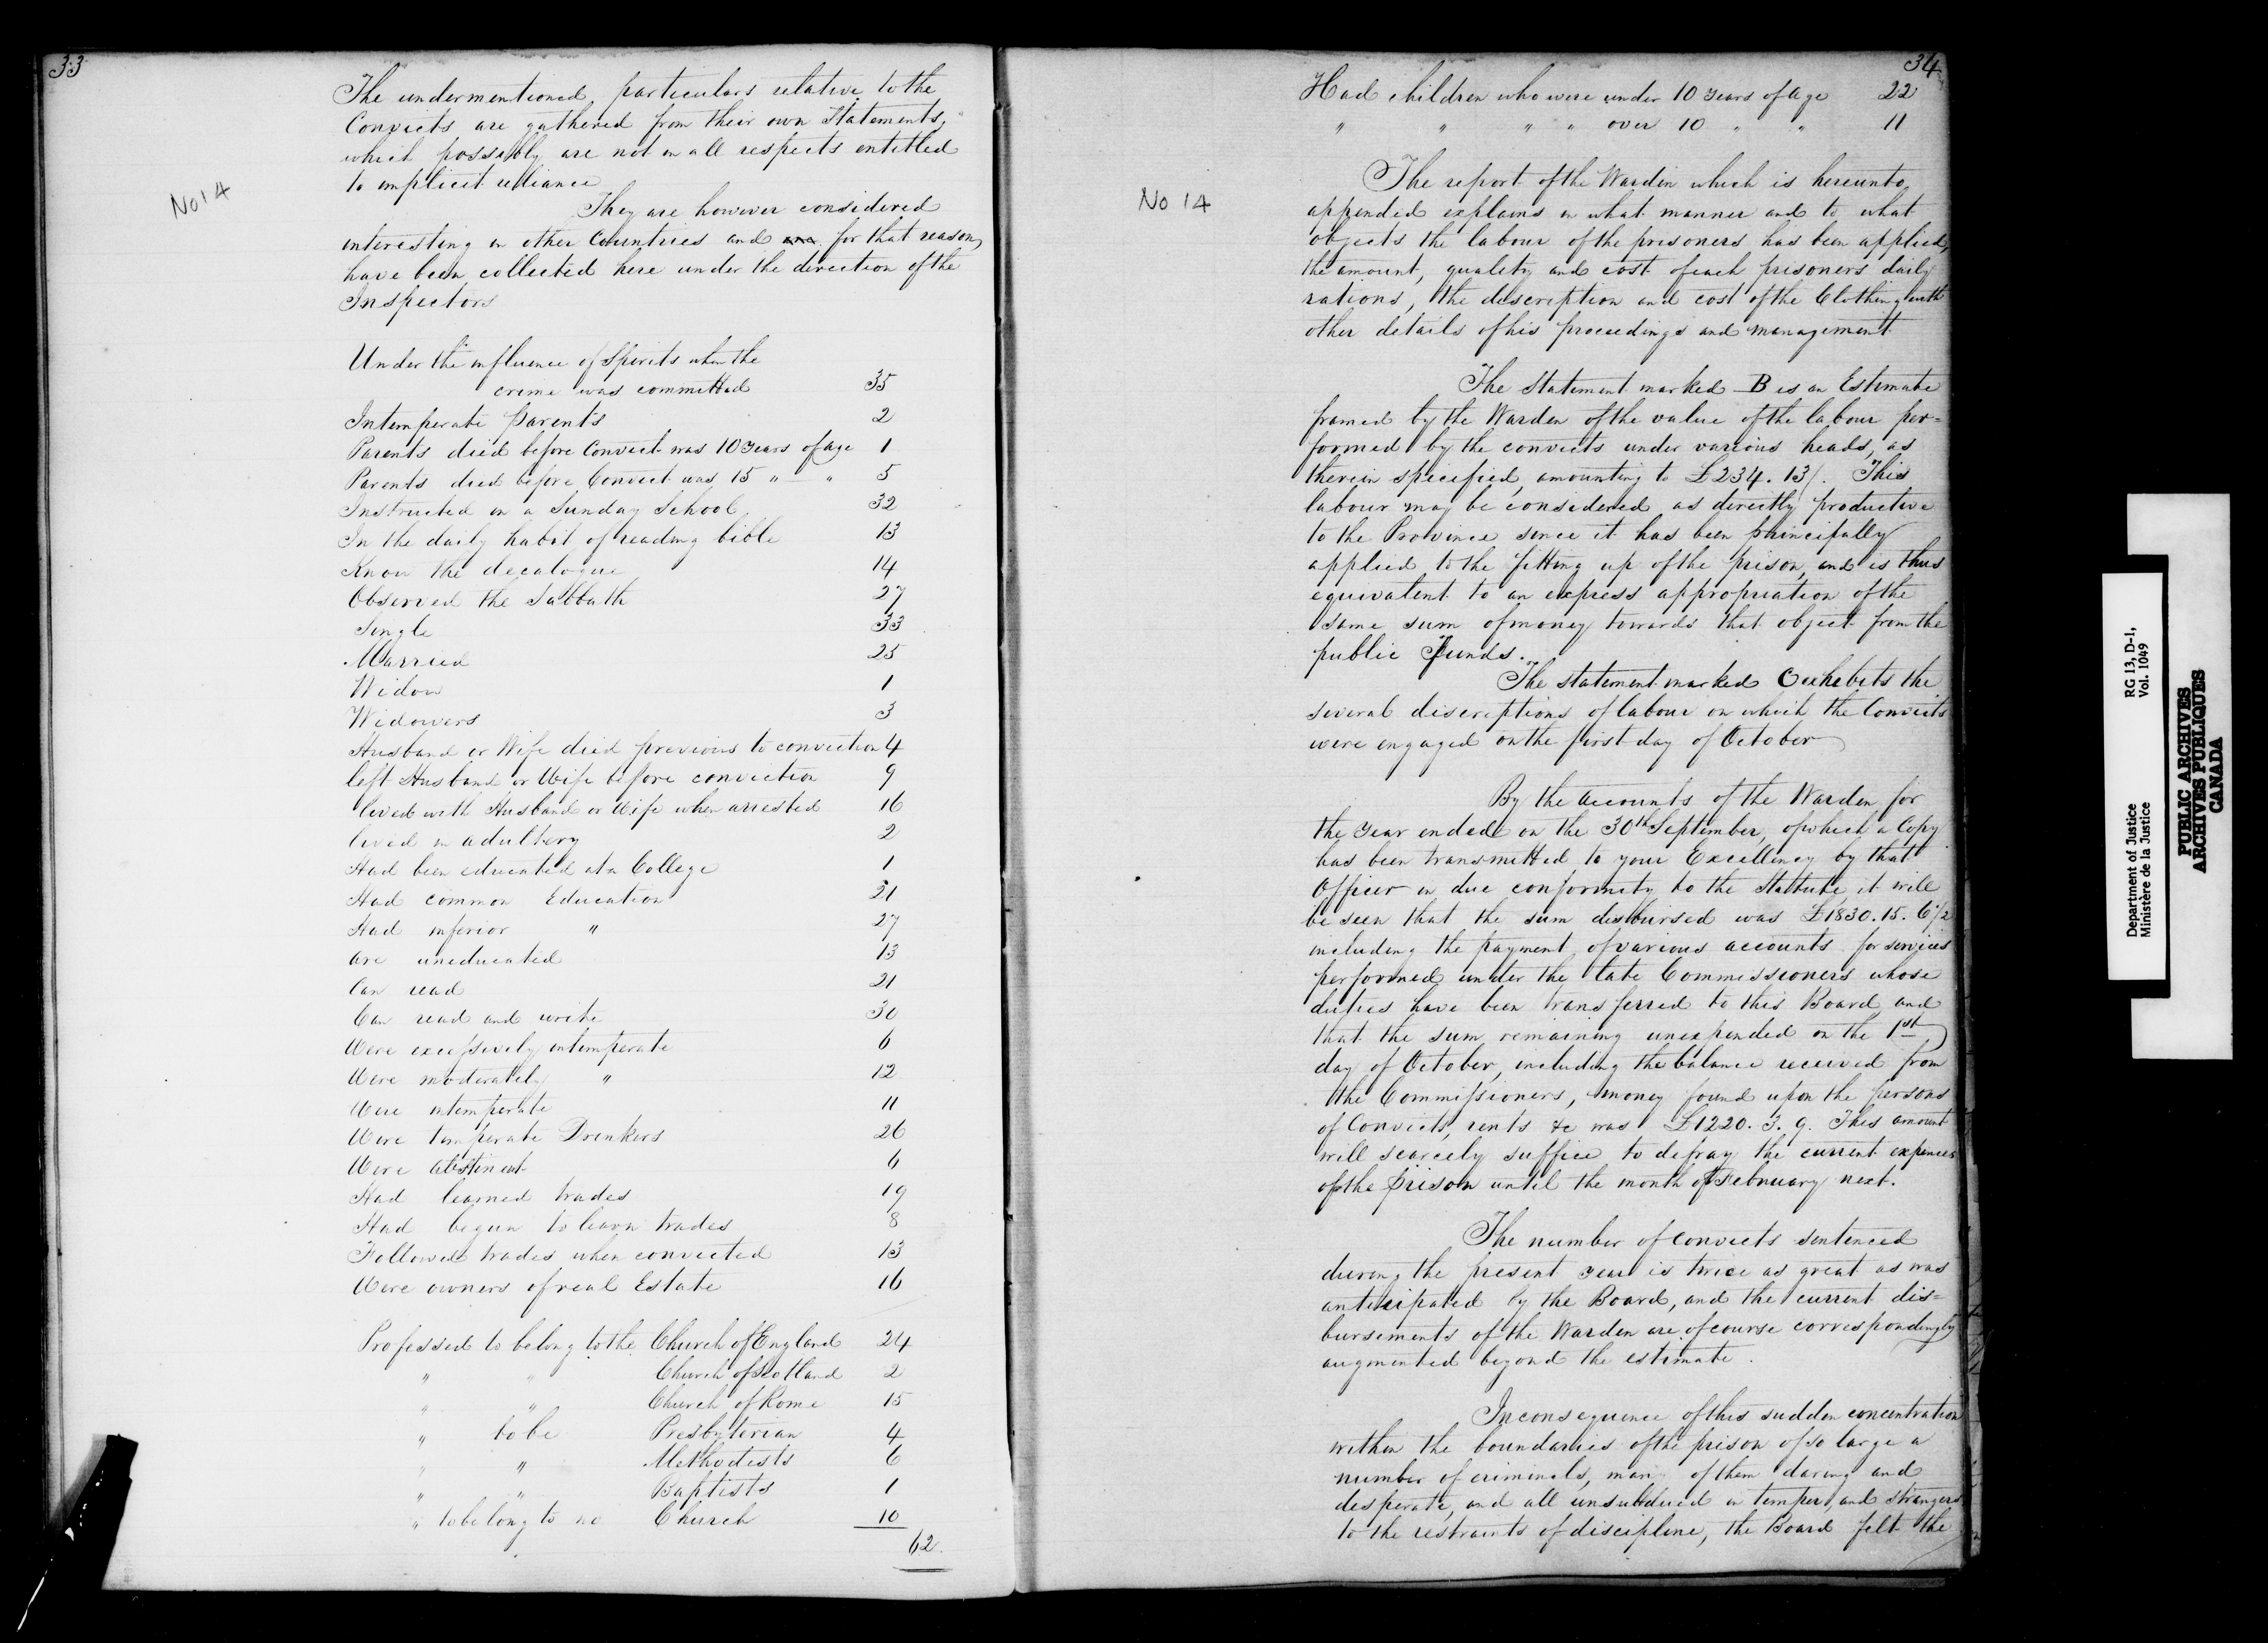 33
The undermentioned particulars relative to the
Convicts are gathered from their own Statements,
which possibly are not in all respects entitled
to implicit reliance
No 14
They are however considered
interesting in other Countries and for that reason,
have been collected here under the direction of the
Inspectors
Under the influence of Spirits when the
crime was committed 35
Intemperate parents 2
Parents died before Convict was 10 Years of age 1
Parents died before Convict was 15 " " 5
Instructed in a Sunday School 32
In the daily habit of reading bible 13
Know the decalogue 14
Observed the Sabbath 27
Single 33
Married 25
Widow 1
Widowers 3
Husband or Wife died previous to conviction 4
left Husband or Wife before conviction 9
lived with Husband or Wife when arrested 16
lived in adultery 2
Had been educated at a College 1
Had common Education 21
Had inferior " 27
are uneducated 13
Can read 21
Can read and write 30
Were excessively intemperate 6
Were moderately " 12
Were intemperate 11
Were temperate Drinkers 26
Were Abstinent 6
Had learned trades 19
Had begun to learn trades 8
Followed trades when convicted 13
Were owners of real Estate 16
Professed to belong to the Church of England 24
" " Church of Scotland 2
" " Church of Rome 15
" to be Presbyterian 4
" " Methodists 6
" " Baptists 1
" to belong to no Church 10
62
34
Had children who were under 10 years of age 22
" " " " over 10 " " 11
The report of the Warden which is hereunto
No 14
appended explains in what manner and to what
objects the labour of the prisoners has been applied,
the amount, quality and cost of each prisoners daily
rations, the description and cost of the Clothing with
other details of his proceedings and management
The Statement marked B is an Estimate
framed by the Warden of the value of the labour per=
formed by the convicts under various heads, as
therein specified, amounting to £234. 13/. This
labour may be considered as directly productive
to the Province since it has been principally
applied to the fitting up of the prison, and is thus
equivalent to an express appropriation of the
same sum of money towards that object from the
public Funds.
The statement marked C exhebits the
several discriptions of labour on which the Convicts
were engaged on the first day of October
By the accounts of the Warden for
the year ended on the 30th September, of which a Copy
has been transmitted to your Excellency by that
Officer in due conformity to the Statute, it will
be seen that the sum disbursed was £1830. 15. 6 1/2
including the payment of various accounts for services
performed under the late Commissioners whose
duties have been transferred to this Board and
that the sum remaining unexpended on the 1st
day of October, including the balance received from
the Commissioners, money found upon the persons
of Convicts, rents &c was £1220. 3. 9. This amount
will scarcely suffice to defray the current expences
of the prison until the month of February next.
The number of convicts sentenced
during the present year is twice as great as was
anticipated by the Board, and the current dis=
bursements of the Warden are of course correspondingly
augmented beyond the estimate.
In consequence of this sudden concentration
within the boundaries of the prison of so large a
number of criminals, many of them daring and
desperate, and all unsubdued in temper, and strangers
to the restraints of discipline, the Board felt the
Department of Justice RG 13, D-1,
Ministère de la Justice Vol. 1049
PUBLIC ARCHIVES
ARCHIVES PUBLIQUES
CANADA